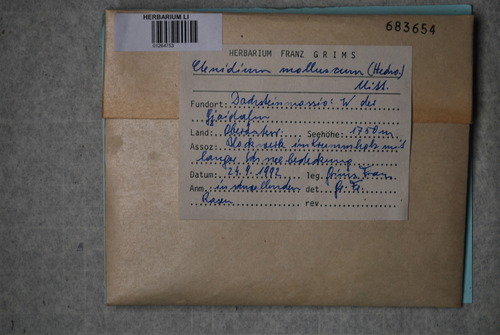 HERBARIUM LI
01264755
683654
HERBARIUM FRANZ GRIMS
Ctenidium molluscum (Hedw.)
Mitt.
Fundort: Dachsteinmassiv: W der
Gjaidalm
Land: Oberösterr. Seehöhe: 1750m
Assoz: Blockwerk im Krummholz mit
langer Schneebedeckung
Datum: 24.9.1992 leg. Grims Franz
Anm. in det. Gr. Fr.
Rasen rev.